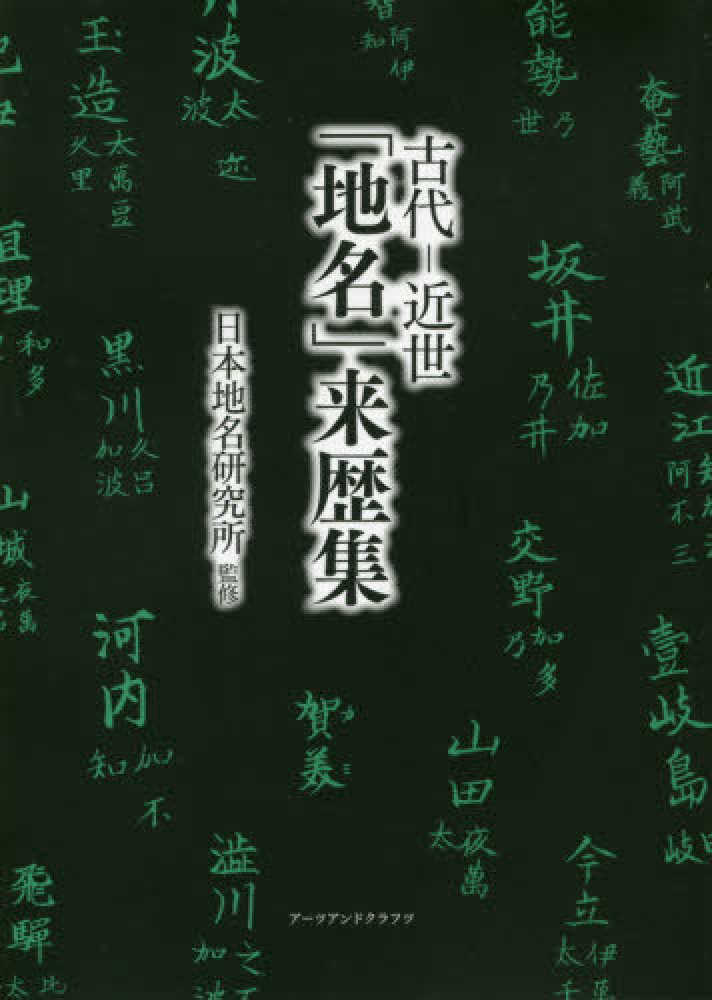 古代－近世
「地名」来歴集
日本地名研究所 監修
アーツアンドクラフツ
能勢
乃
世
奄藝
阿武
義
坂井
佐加
乃井
近江
阿不三
交野
加多
乃
壹岐島
岐
山田
夜萬
太
今立
伊萬
太千
賀美
カ
ミ
智
阿伊
知
丹波
太迩
波
玉造
太萬豆
久里
黒川
久呂
加波
河内
加不
知
澁川
之不
加波
和多
山城
夜萬
飛驒
比
太